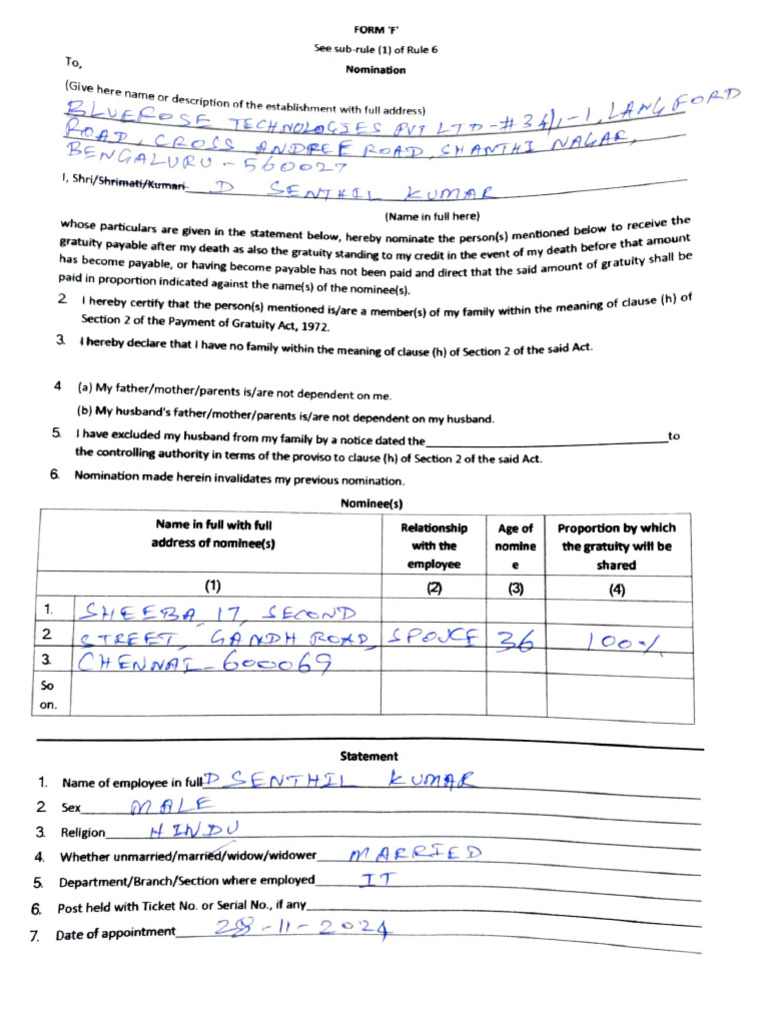 FORM 'F'
See sub-rule (1) of Rule 6
To,
Nomination
(Give here name or description of the establishment with full address)
BLUEROSE TECHNOLOGIES PVT LTD-#34/1-1, LANGFORD
ROAD, CROSS ANDREE ROAD, SHANTHI NAGAR,
BENGALURU-560027
I, Shri/Shrimati/Kumari D SENTHIL KUMAR
(Name in full here)
whose particulars are given in the statement below, hereby nominate the person(s) mentioned below to receive the
gratuity payable after my death as also the gratuity standing to my credit in the event of my death before that amount
has become payable, or having become payable has not been paid and direct that the said amount of gratuity shall be
paid in proportion indicated against the name(s) of the nominee(s).
2. I hereby certify that the person(s) mentioned is/are a member(s) of my family within the meaning of clause (h) of
Section 2 of the Payment of Gratuity Act, 1972.
3. I hereby declare that I have no family within the meaning of clause (h) of Section 2 of the said Act.
4 (a) My father/mother/parents is/are not dependent on me.
(b) My husband's father/mother/parents is/are not dependent on my husband.
5. I have excluded my husband from my family by a notice dated the____to
the controlling authority in terms of the proviso to clause (h) of Section 2 of the said Act.
6. Nomination made herein invalidates my previous nomination.
Nominee(s)
Name in full with full Relationship Age of Proportion by which
address of nominee(s) with the nomine the gratuity will be
employee e shared
(1) (2) (3) (4)
1. SHEEBA, 17, SECOND
2 STREET, GANDH ROAD, SPOUCE 36 100%
3. CHENNAI-600069
So
on.
Statement
1. Name of employee in full D SENTHIL KUMAR
2 Sex MALE
3. Religion HINDU
4. Whether unmarried/married/widow/widower MARRIED
5. Department/Branch/Section where employed IT
6. Post held with Ticket No. or Serial No., if any
7. Date of appointment 28-11-2024